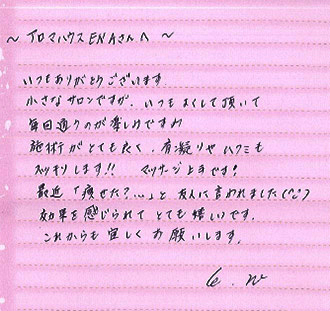 ～アロマハウスENAさんへ～
いつもありがとうございます
小さなサロンですが、いつもよくして頂いて
毎回通うのが楽しみですわ
施術がとても良く、肩凝りやハクミも
スッキリします!! マッサージ上手です!
最近「痩せた?…」と友人に言われました(^^)
効果を感じられてとても嬉しいです。
これからも宜しくお願いします。